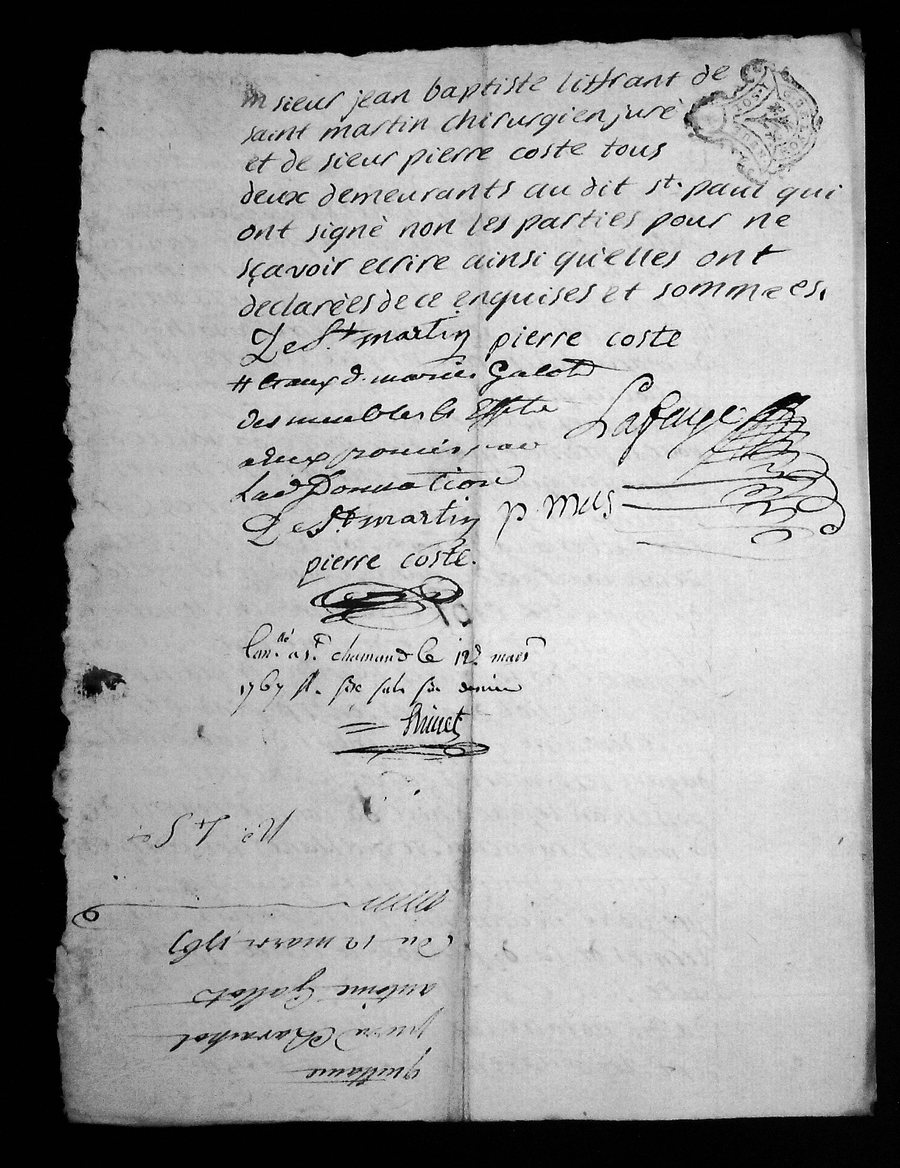 sieur jean baptiste liffrant de
saint martin chirurgien juré
et de sieur pierre coste tous
deux demeurants au dit st. paul qui
ont signè non les parties pour ne
sçavoir ecrire ainsi qu'elles ont
declarées de ce enquises et sommees.
De St martin pierre coste
d. marie Galot
des meubles & Effets
Lafaye
donnation
De St martin p. mas
pierre coste.
a st. chamand le 12e mars
1767
du 12 mars 1767
antoine Gallot
quittance